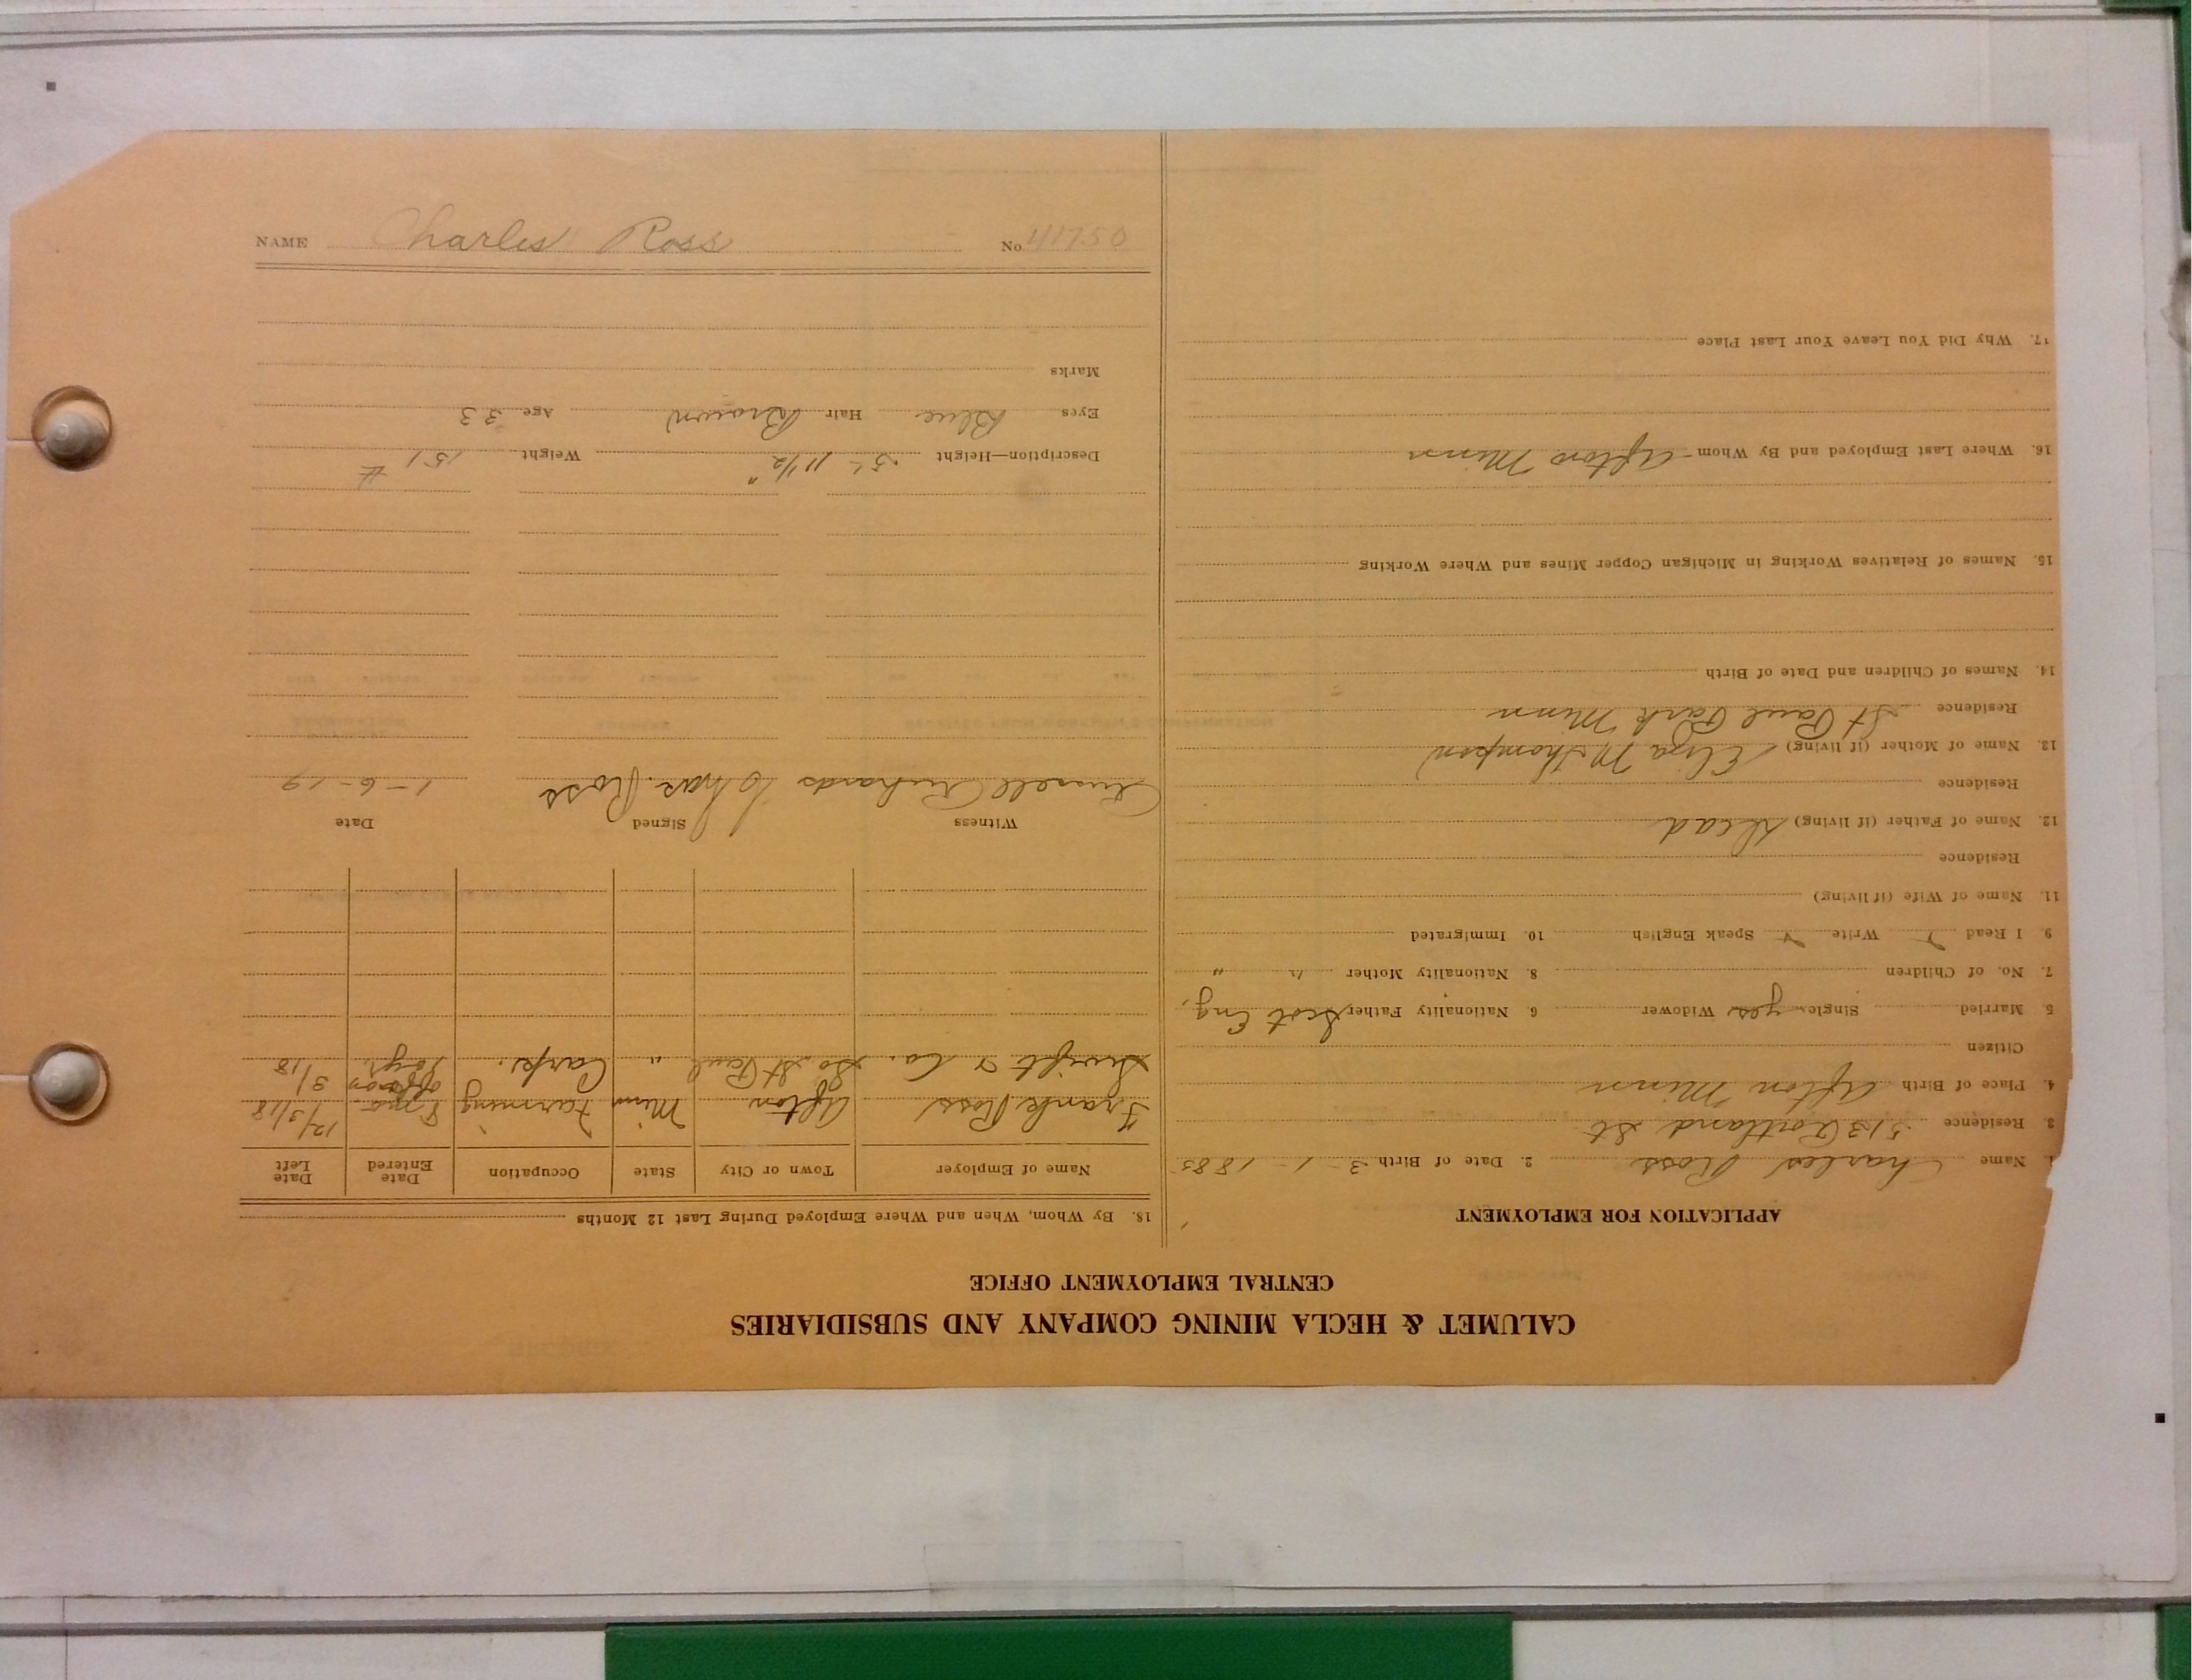 CALUMET & HECLA MINING COMPANY AND SUBSIDIARIES
CENTRAL EMPLOYMENT OFFICE
APPLICATION FOR EMPLOYMENT
1. Name Charles Ross 2. Date of Birth 3-1-1885
3. Residence 513 Portland St
4. Place of Birth Afton Minn
Citizen
5. Married Single yes Widower 6. Nationality Father Scot Eng.
7. No. of Children 8. Nationality Mother " "
9. I Read ✓ Write ✓ Speak English 10. Immigrated
11. Name of Wife (if living)
Residence
12. Name of Father (if living) Dead
Residence
13. Name of Mother (if living) Eliza M Thompson
Residence St Paul Park Minn
14. Names of Children and Date of Birth
15. Names of Relatives Working in Michigan Copper Mines and Where Working
16. Where Last Employed and By Whom Afton Minn
17. Why Did You Leave Your Last Place
18. By Whom, When and Where Employed During Last 12 Months
Name of Employer Town or City State Occupation Date Entered Date Left
Frank Ross Afton Minn Farming 8 mo. 12/3/18
Swift & Co. So. St Paul " Carp. off & on 10 yr. 3/18
Witness Signed Date
Russell Richards Chas. Ross 1-6-19
Description—Height 5'- 11 1/2" Weight 151 #
Eyes Blue Hair Brown Age 33
Marks
NAME Charles Ross No. 41750